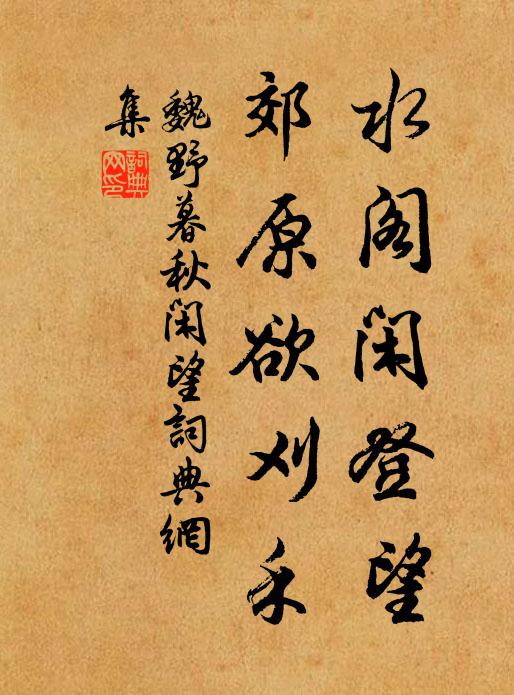 水阁闲登望
郊原欲刈禾
魏野暮秋闲望詞典網
集
詞典
网印